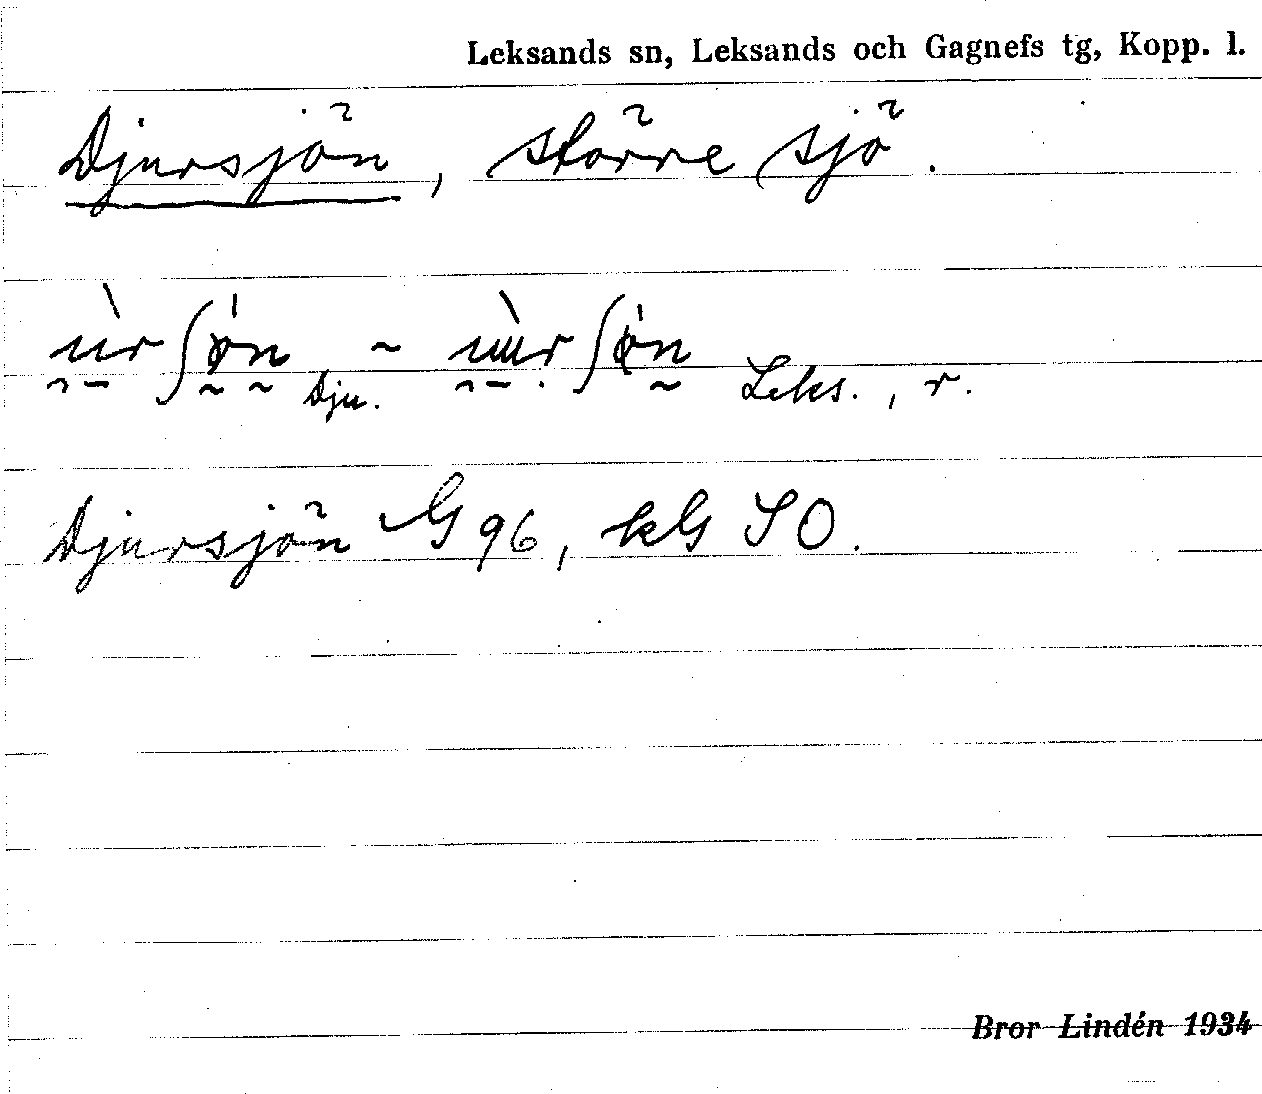 Leksands sn, Leksands och Gagnefs tg, Kopp. l.
Djursjön, större sjö.
Dju. ~ Leks., r.
Djursjön G 96, kG SO.
Bror Lindén 1934